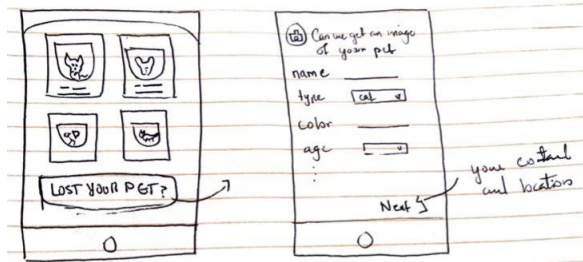 LOST YOUR PET?
Can we get an image
of your pet
name
type cat
color
age
Next
your contact
and location